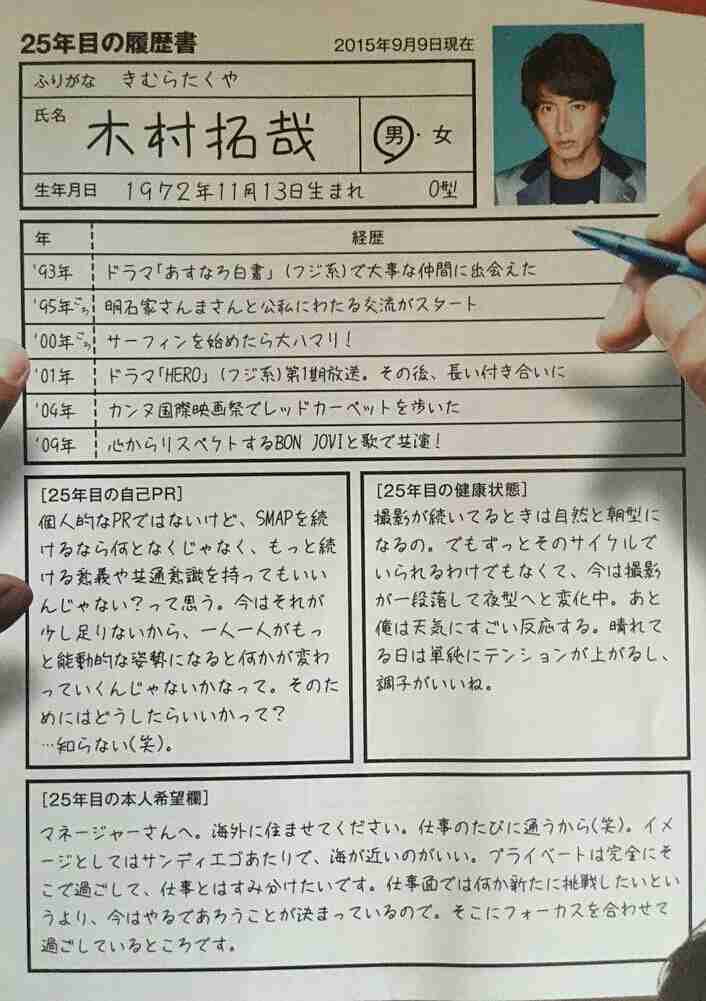 25年目の履歴書
2015年9月9日現在
ふりがな きむらたくや
氏名 木村拓哉 男・女
生年月日 1972年11月13日生まれ O型
年 経歴
'93年 ドラマ「あすなろ白書」(フジ系)で大事な仲間に出会えた
'95年ごろ 明石家さんまさんと公私にわたる交流がスタート
'00年ごろ サーフィンを始めたら大ハマり!
'01年 ドラマ「HERO」(フジ系)第1期放送。その後、長い付き合いに
'04年 カンヌ国際映画祭でレッドカーペットを歩いた
'09年 心からリスペクトするBON JOVIと歌で共演!
[25年目の自己PR]
個人的なPRではないけど、SMAPを続
けるなら何となくじゃなく、もっと続
ける意義や共通意識を持ってもいい
んじゃない?って思う。今はそれが
少し足りないから、一人一人がもっ
と能動的な姿勢になると何かが変わ
っていくんじゃないかなって。そのた
めにはどうしたらいいかって?
…知らない(笑)。
[25年目の健康状態]
撮影が続いてるときは自然と朝型に
なるの。でもずっとそのサイクルで
いられるわけでもなくて、今は撮影
が一段落して夜型へと変化中。あと
俺は天気にすごい反応する。晴れて
る日は単純にテンションが上がるし、
調子がいいね。
[25年目の本人希望欄]
マネージャーさんへ。海外に住ませてください。仕事のたびに通うから(笑)。イメ
ージとしてはサンディエゴあたりで、海が近いのがいい。プライベートは完全にそ
こで過ごして、仕事とはすみ分けたいです。仕事面では何か新たに挑戦したいとい
うより、今はやるであろうことが決まっているので。そこにフォーカスを合わせて
過ごしているところです。